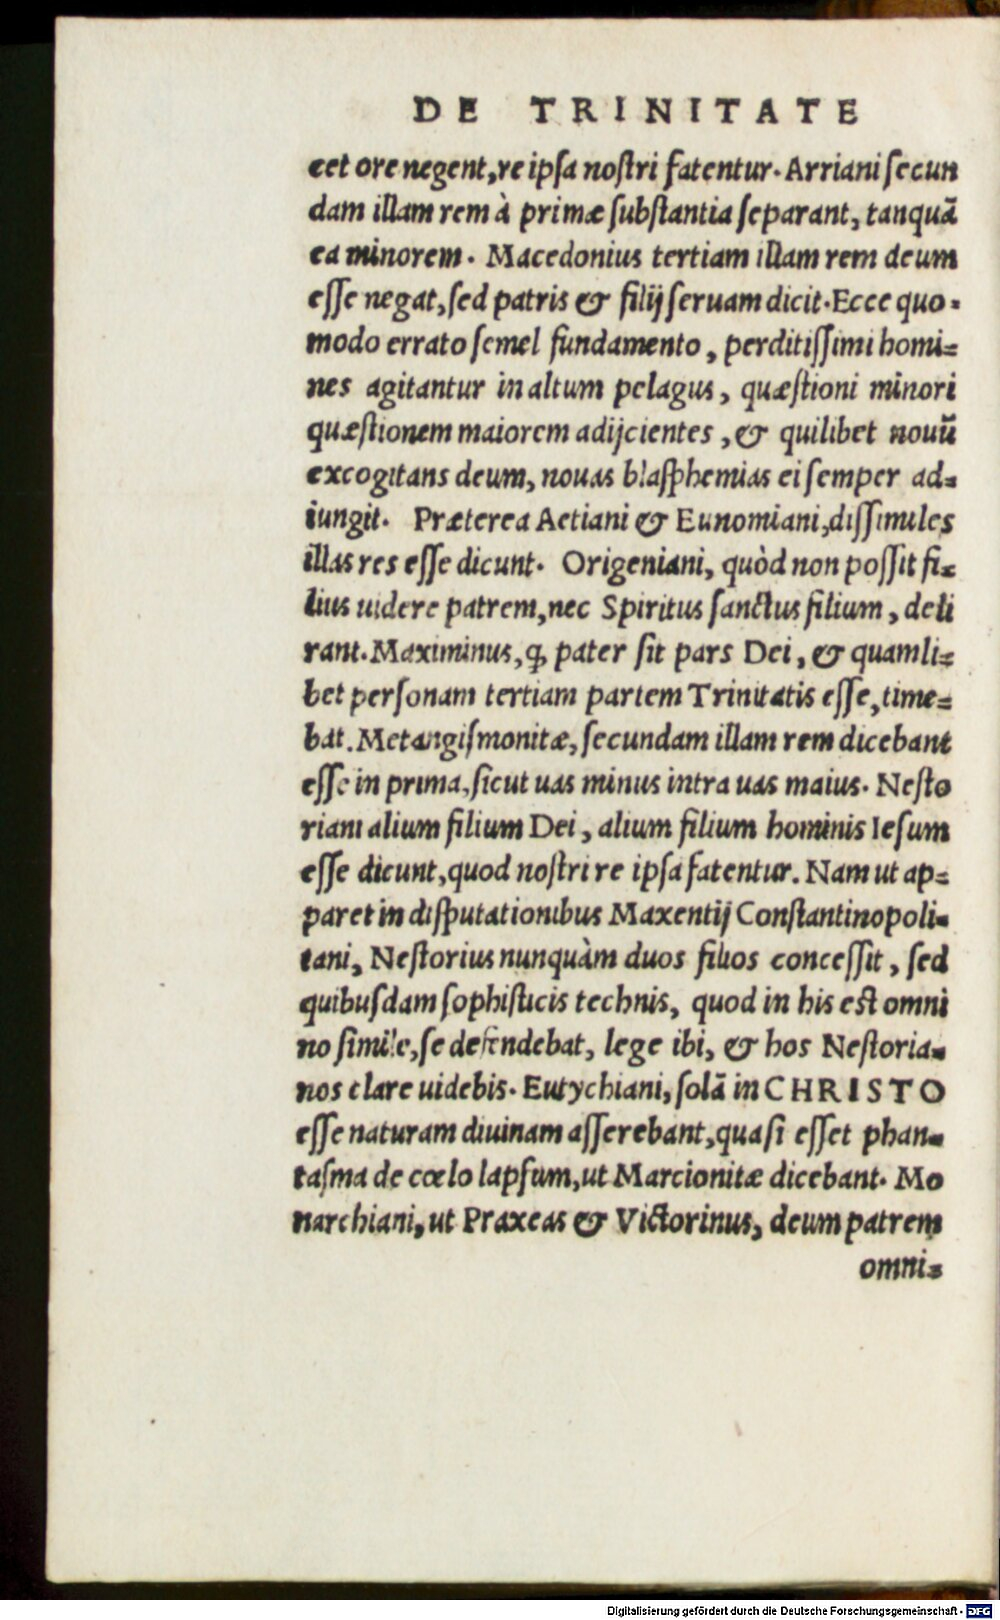 DE TRINITATE
cet ore negent, re ipsa nostri fatentur. Arriani secun
dam illam rem à primæ substantia separant, tanquã
ea minorem. Macedonius tertiam illam rem deum
esse negat, sed patris & filij seruam dicit. Ecce quo-
modo errato semel fundamento, perditissimi homi-
nes agitantur in altum pelagus, quæstioni minori
quæstionem maiorem adijcientes, & quilibet nouũ
excogitans deum, nouas blasphemias ei semper ad-
iungit. Præterea Aetiani & Eunomiani, dissimiles
illas res esse dicunt. Origeniani, quòd non possit fi-
lius uidere patrem, nec Spiritus sanctus filium, deli
rant. Maximinus, ꝙ pater sit pars Dei, & quamli-
bet personam tertiam partem Trinitatis esse, time-
bat. Metangismonitæ, secundam illam rem dicebant
esse in prima, sicut uas minus intra uas maius. Nesto
riani alium filium Dei, alium filium hominis Iesum
esse dicunt, quod nostri re ipsa fatentur. Nam ut ap-
paret in disputationibus Maxentij Constantinopoli-
tani, Nestorius nunquàm duos filios concessit, sed
quibusdam sophisticis technis, quod in his est omni
no simile, se defendebat, lege ibi, & hos Nestoria-
nos clare uidebis. Eutychiani, solã in CHRISTO
esse naturam diuinam asserebant, quasi esset phan-
tasma de cœlo lapsum, ut Marcionitæ dicebant. Mo
narchiani, ut Praxeas & Victorinus, deum patrem
omni-
Digitalisierung gefördert durch die Deutsche Forschungsgemeinschaft - DFG